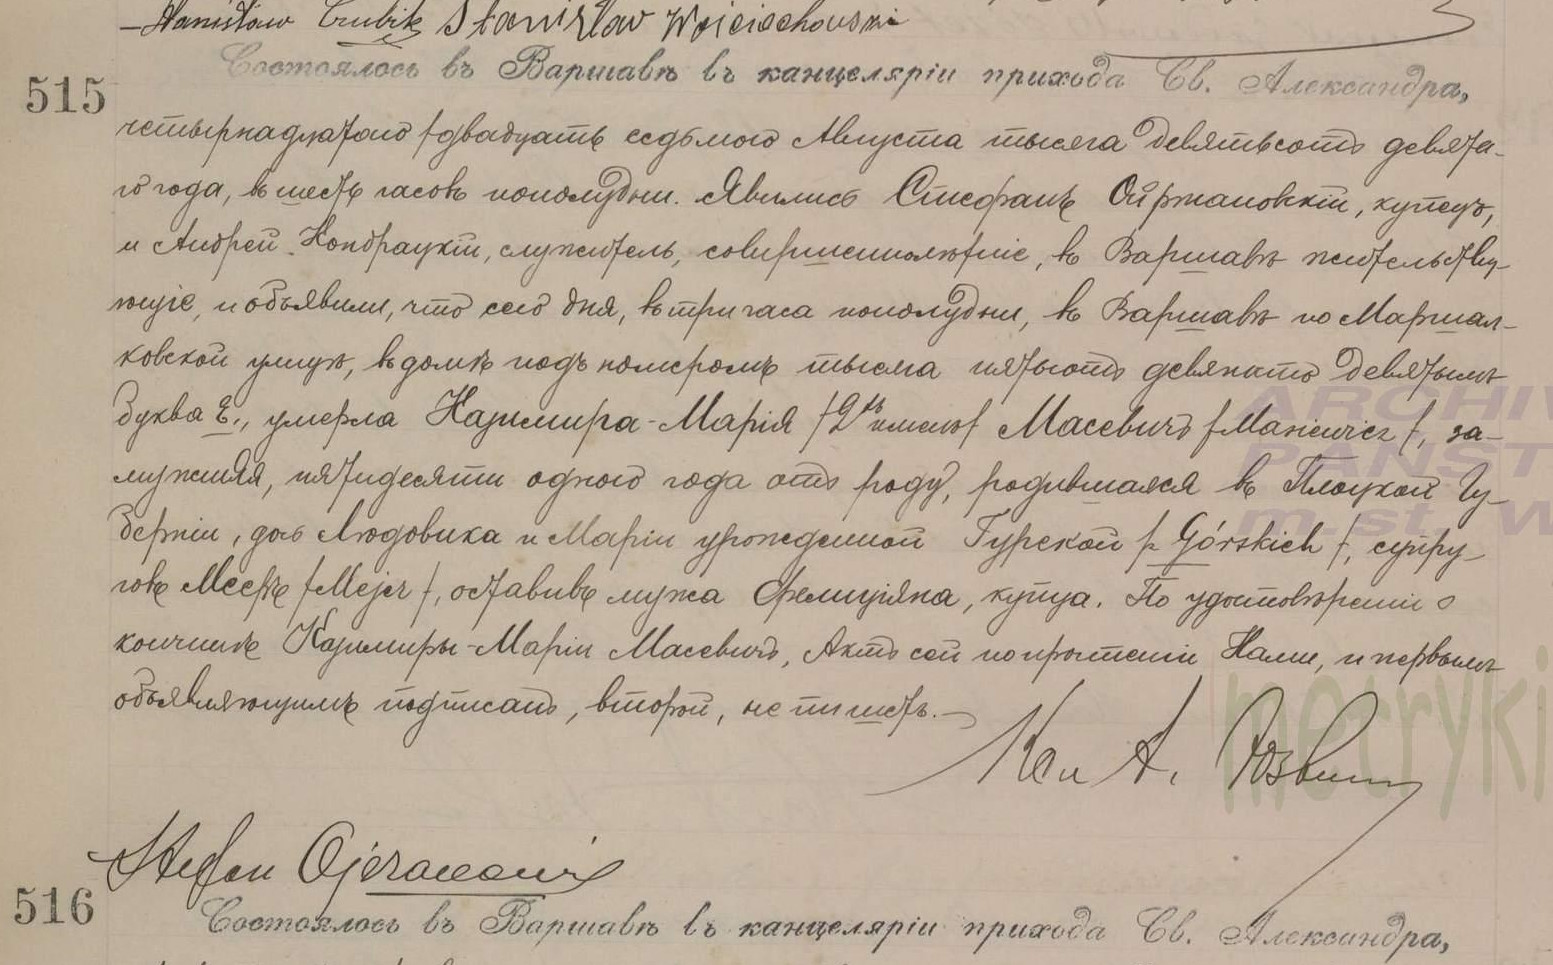 Stanisław Stanisław Wojciechowski
515
Состоялось въ Варшавѣ въ канцеляріи прихода Св. Александра,
четырнадцатаго /двадцать седьмого Августа тысяча девятьсотъ девята-
го года, въ шесть часовъ пополудни. Явились Стефанъ Ойржановскій, купецъ,
и Андрей Кондрацкій, служитель, совершеннолѣтніе, въ Варшавѣ жительству-
ющіе, и объявили, что сего дня, въ три часа пополудни, въ Варшавѣ по Маршал-
ковской улицѣ, въ домѣ подъ номеромъ тысяча пятьсотъ девяносто девятымъ
буква Е., умерла Казимира-Марія /2хъ именъ/ Масевичъ /Masiewicz/, за-
мужняя, пятидесяти одного года отъ роду, родившаяся въ Плоцкой Гу-
берніи, дочь Людовика и Маріи урожденной Гурской /z Górskich/, супру-
говъ Мееръ /Mejer/, оставивъ мужа Фелиціяна, купца. По удостовѣреніи о
кончинѣ Казимиры-Маріи Масевичъ, Актъ сей по прочтеніи Нами, и первымъ
объявляющимъ подписанъ, второй, не пишетъ.
Кс. А.
Stefan Ojrzanowski
516
Состоялось въ Варшавѣ въ канцеляріи прихода Св. Александра,
ARCHIW
PAŃST
m.st. W
metryki